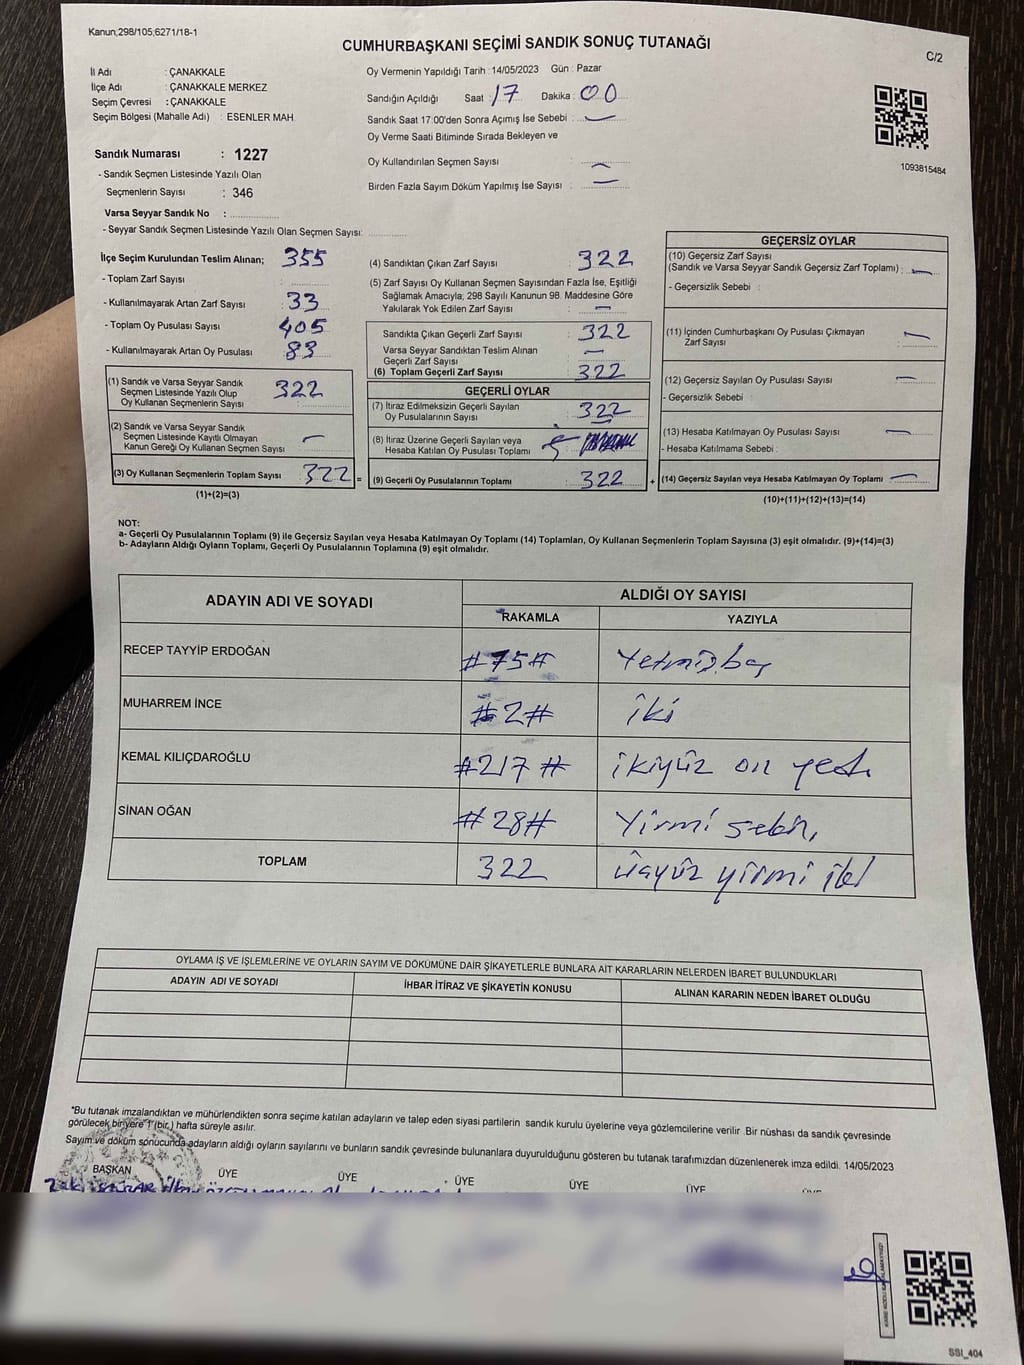 Kanun;298/105;6271/18-1
CUMHURBAŞKANI SEÇİMİ SANDIK SONUÇ TUTANAĞI
C/2
İl Adı : ÇANAKKALE
İlçe Adı : ÇANAKKALE MERKEZ
Seçim Çevresi : ÇANAKKALE
Seçim Bölgesi (Mahalle Adı) : ESENLER MAH.
Sandık Numarası : 1227
- Sandık Seçmen Listesinde Yazılı Olan
Seçmenlerin Sayısı : 346
Varsa Seyyar Sandık No :
- Seyyar Sandık Seçmen Listesinde Yazılı Olan Seçmen Sayısı:
Oy Vermenin Yapıldığı Tarih : 14/05/2023 Gün : Pazar
Sandığın Açıldığı Saat : 17 Dakika : 00
Sandık Saat 17:00'den Sonra Açımış İse Sebebi : —
Oy Verme Saati Bitiminde Sırada Bekleyen ve
Oy Kullandırılan Seçmen Sayısı : —
Birden Fazla Sayım Döküm Yapılmış İse Sayısı : —
1093815484
İlçe Seçim Kurulundan Teslim Alınan; 355
- Toplam Zarf Sayısı :
- Kullanılmayarak Artan Zarf Sayısı : 33
- Toplam Oy Pusulası Sayısı : 405
- Kullanılmayarak Artan Oy Pusulası : 83
(1) Sandık ve Varsa Seyyar Sandık
Seçmen Listesinde Yazılı Olup
Oy Kullanan Seçmenlerin Sayısı : 322
(2) Sandık ve Varsa Seyyar Sandık
Seçmen Listesinde Kayıtlı Olmayan
Kanun Gereği Oy Kullanan Seçmen Sayısı : —
(3) Oy Kullanan Seçmenlerin Toplam Sayısı : 322 =
(1)+(2)=(3)
(4) Sandıktan Çıkan Zarf Sayısı : 322
(5) Zarf Sayısı Oy Kullanan Seçmen Sayısından Fazla İse, Eşitliği
Sağlamak Amacıyla; 298 Sayılı Kanunun 98. Maddesine Göre
Yakılarak Yok Edilen Zarf Sayısı : —
Sandıkta Çıkan Geçerli Zarf Sayısı : 322
Varsa Seyyar Sandıktan Teslim Alınan
Geçerli Zarf Sayısı : —
(6) Toplam Geçerli Zarf Sayısı : 322
GEÇERLİ OYLAR
(7) İtiraz Edilmeksizin Geçerli Sayılan
Oy Pusulalarının Sayısı : 322
(8) İtiraz Üzerine Geçerli Sayılan veya
Hesaba Katılan Oy Pusulası Toplamı :
(9) Geçerli Oy Pusulalarının Toplamı : 322 +
GEÇERSİZ OYLAR
(10) Geçersiz Zarf Sayısı
(Sandık ve Varsa Seyyar Sandık Geçersiz Zarf Toplamı) : —
- Geçersizlik Sebebi :
(11) İçinden Cumhurbaşkanı Oy Pusulası Çıkmayan
Zarf Sayısı : —
(12) Geçersiz Sayılan Oy Pusulası Sayısı : —
- Geçersizlik Sebebi :
(13) Hesaba Katılmayan Oy Pusulası Sayısı : —
- Hesaba Katılmama Sebebi :
(14) Geçersiz Sayılan veya Hesaba Katılmayan Oy Toplamı : —
(10)+(11)+(12)+(13)=(14)
NOT:
a- Geçerli Oy Pusulalarının Toplamı (9) ile Geçersiz Sayılan veya Hesaba Katılmayan Oy Toplamı (14) Toplamları, Oy Kullanan Seçmenlerin Toplam Sayısına (3) eşit olmalıdır. (9)+(14)=(3)
b- Adayların Aldığı Oyların Toplamı, Geçerli Oy Pusulalarının Toplamına (9) eşit olmalıdır.
ADAYIN ADI VE SOYADI
ALDIĞI OY SAYISI
RAKAMLA YAZIYLA
RECEP TAYYİP ERDOĞAN #75# Yetmişbeş
MUHARREM İNCE #2# iki
KEMAL KILIÇDAROĞLU #217# ikiyüz on yedi
SİNAN OĞAN #28# Yirmi sekiz
TOPLAM 322 üçyüz yirmi iki
OYLAMA İŞ VE İŞLEMLERİNE VE OYLARIN SAYIM VE DÖKÜMÜNE DAİR ŞİKAYETLERLE BUNLARA AİT KARARLARIN NELERDEN İBARET BULUNDUKLARI
ADAYIN ADI VE SOYADI İHBAR İTİRAZ VE ŞİKAYETİN KONUSU ALINAN KARARIN NEDEN İBARET OLDUĞU
*Bu tutanak imzalandıktan ve mühürlendikten sonra seçime katılan adayların ve talep eden siyasi partilerin sandık kurulu üyelerine veya gözlemcilerine verilir. Bir nüshası da sandık çevresinde
görülecek bir yere 1 (bir) hafta süreyle asılır.
Sayım ve döküm sonucunda adayların aldığı oyların sayılarını ve bunların sandık çevresinde bulunanlara duyurulduğunu gösteren bu tutanak tarafımızdan düzenlenerek imza edildi. 14/05/2023
BAŞKAN ÜYE ÜYE ÜYE ÜYE ÜYE ÜYE
SSI_404